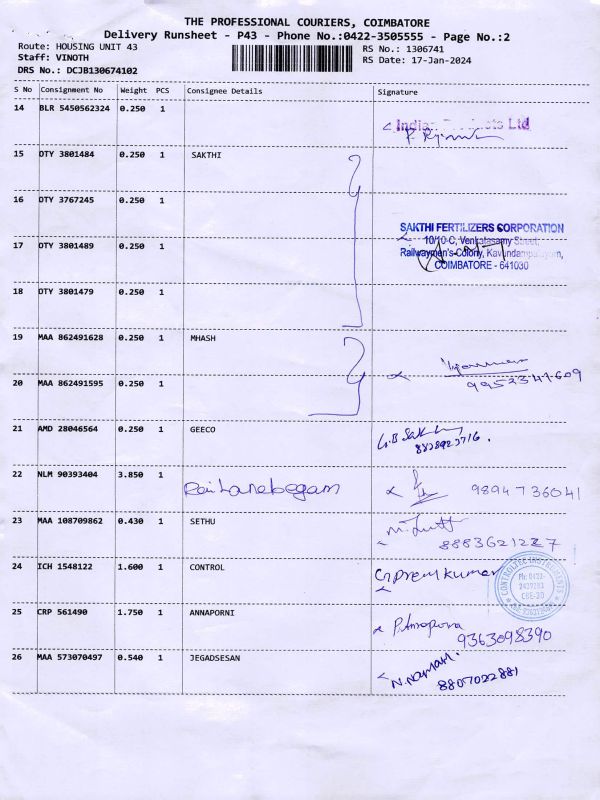 THE PROFESSIONAL COURIERS, COIMBATORE
Delivery Runsheet - P43 - Phone No.:0422-3505555 - Page No.:2
Route: HOUSING UNIT 43
RS No.: 1306741
Staff: VINOTH
RS Date: 17-Jan-2024
DRS No.: DCJB130674102
S No Consignment No Weight PCS Consignee Details Signature
14 BLR 5450562324 0.250 1
Ltd
15 DTY 3801484 0.250 1 SAKTHI
16 DTY 3767245 0.250 1
SAKTHI FERTILIZERS CORPORATION
10/10-C, Venkatasamy Street,
17 DTY 3801489 0.250 1
Railwaymen's Colony, Kavundampalayam,
COIMBATORE - 641030
18 DTY 3801479 0.250 1
19 MAA 862491628 0.250 1 MHASH
20 MAA 862491595 0.250 1
9952341609
21 AMD 28046564 0.250 1 GEECO
22 NLM 90393404 3.850 1 Raihanabegam 9894736041
23 MAA 108709862 0.430 1 SETHU
8883621227
24 ICH 1548122 1.600 1 CONTROL
CONTROLTEC INSTRUMENTS
CBE-20
25 CRP 561490 1.750 1 ANNAPORNI P.Annapoorna
9363098390
26 MAA 573070497 0.540 1 JEGADSESAN
8807022881